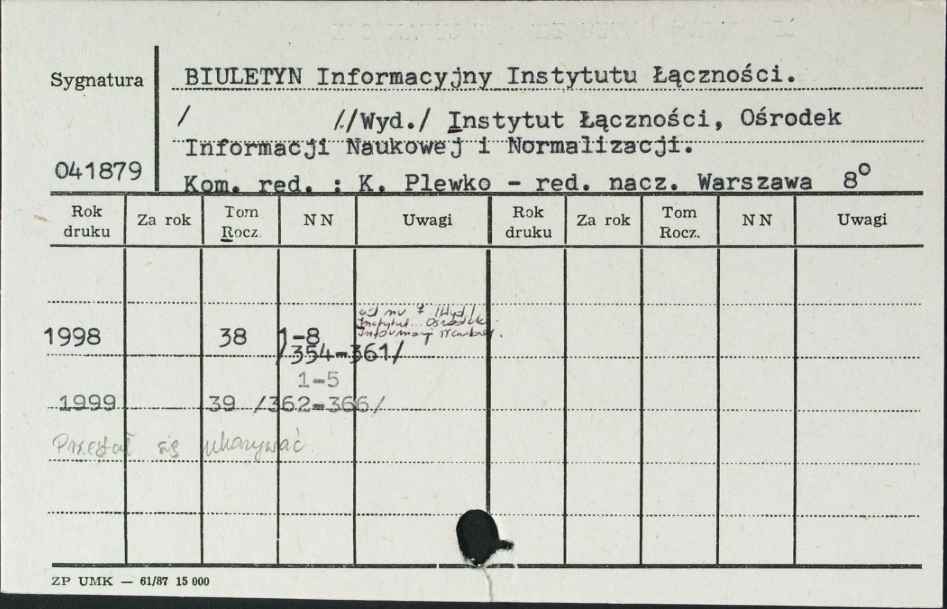 Sygnatura
BIULETYN Informacyjny Instytutu Łączności.
/ //Wyd./ Instytut Łączności, Ośrodek
Informacji Naukowej i Normalizacji.
041879
Kom. red. : K. Plewko - red. nacz. Warszawa 8°
Rok druku Za rok Tom Rocz. NN Uwagi Rok druku Za rok Tom Rocz. NN Uwagi
od nr 7 /Wyd./
Instytut... Ośrodek
Informacji Naukowej.
1998 38 1-8
/354-361/
1-5
1999 39 /362-366/
Przestał się ukazywać
ZP UMK — 61/87 15 000